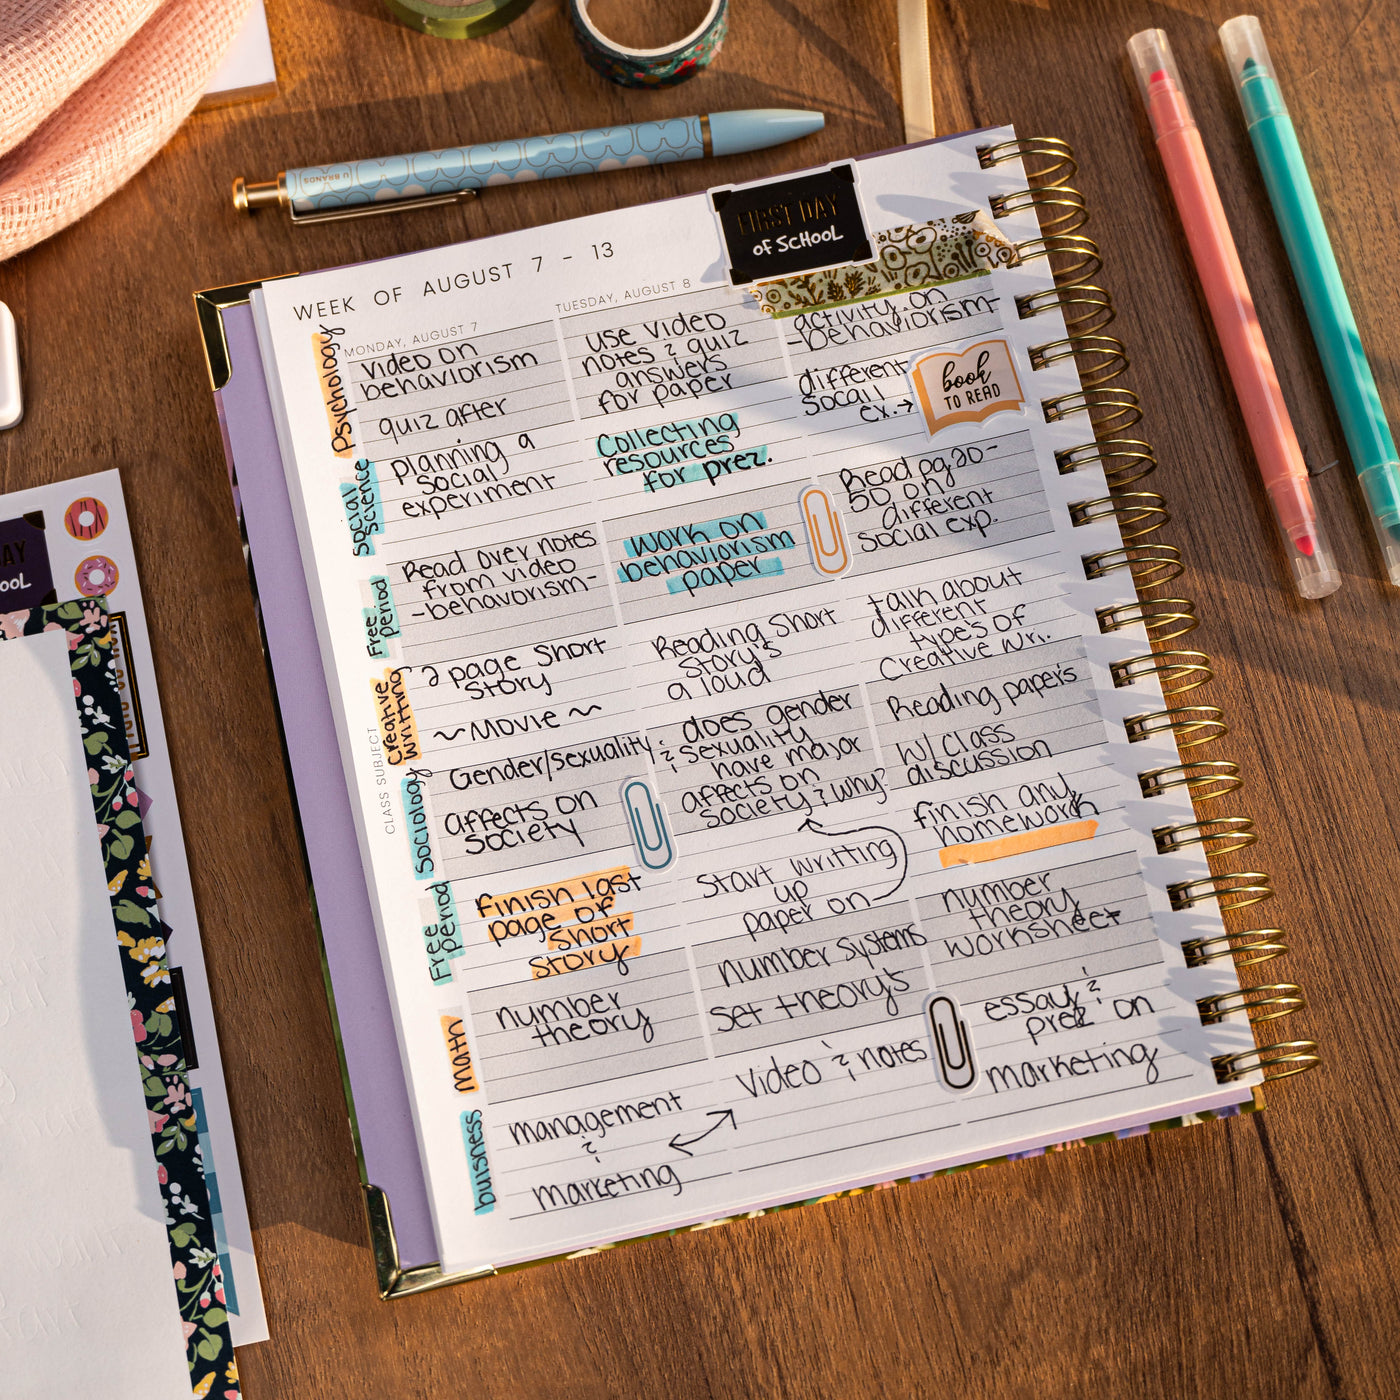 U BRANDS
FIRST DAY
OF SCHOOL
WEEK OF AUGUST 7 - 13
MONDAY, AUGUST 7
TUESDAY, AUGUST 8
CLASS SUBJECT
Psychology
video on
behaviorism
quiz after
use video
notes & quiz
answers
for paper
activity on
-behaviorism-
different
socail
ex.→
book
TO READ
Social
Science
planning a
social
experiment
Collecting
resources
for prez.
Read pg 20-
50 on
different
social exp.
Free
period
Read over notes
from video
-behavorism-
work on
behaviorism
paper
Creative
writting
2 page short
story
~Movie~
Reading short
story's
a loud
talk about
different
types of
Creative wri.
Sociology
Gender/sexuality
affects on
society
does gender
& sexuality
have major
affects on
society & why?
Reading paper's
w/ class
discussion
Free
period
finish last
page of
short
story
Start writting
up
paper on
finish any
homework
Math
number
theory
number systems
set theory's
number
theory
worksheet
buisness
management
&
marketing
video & notes
essay &
prez on
marketing
AY
OOL